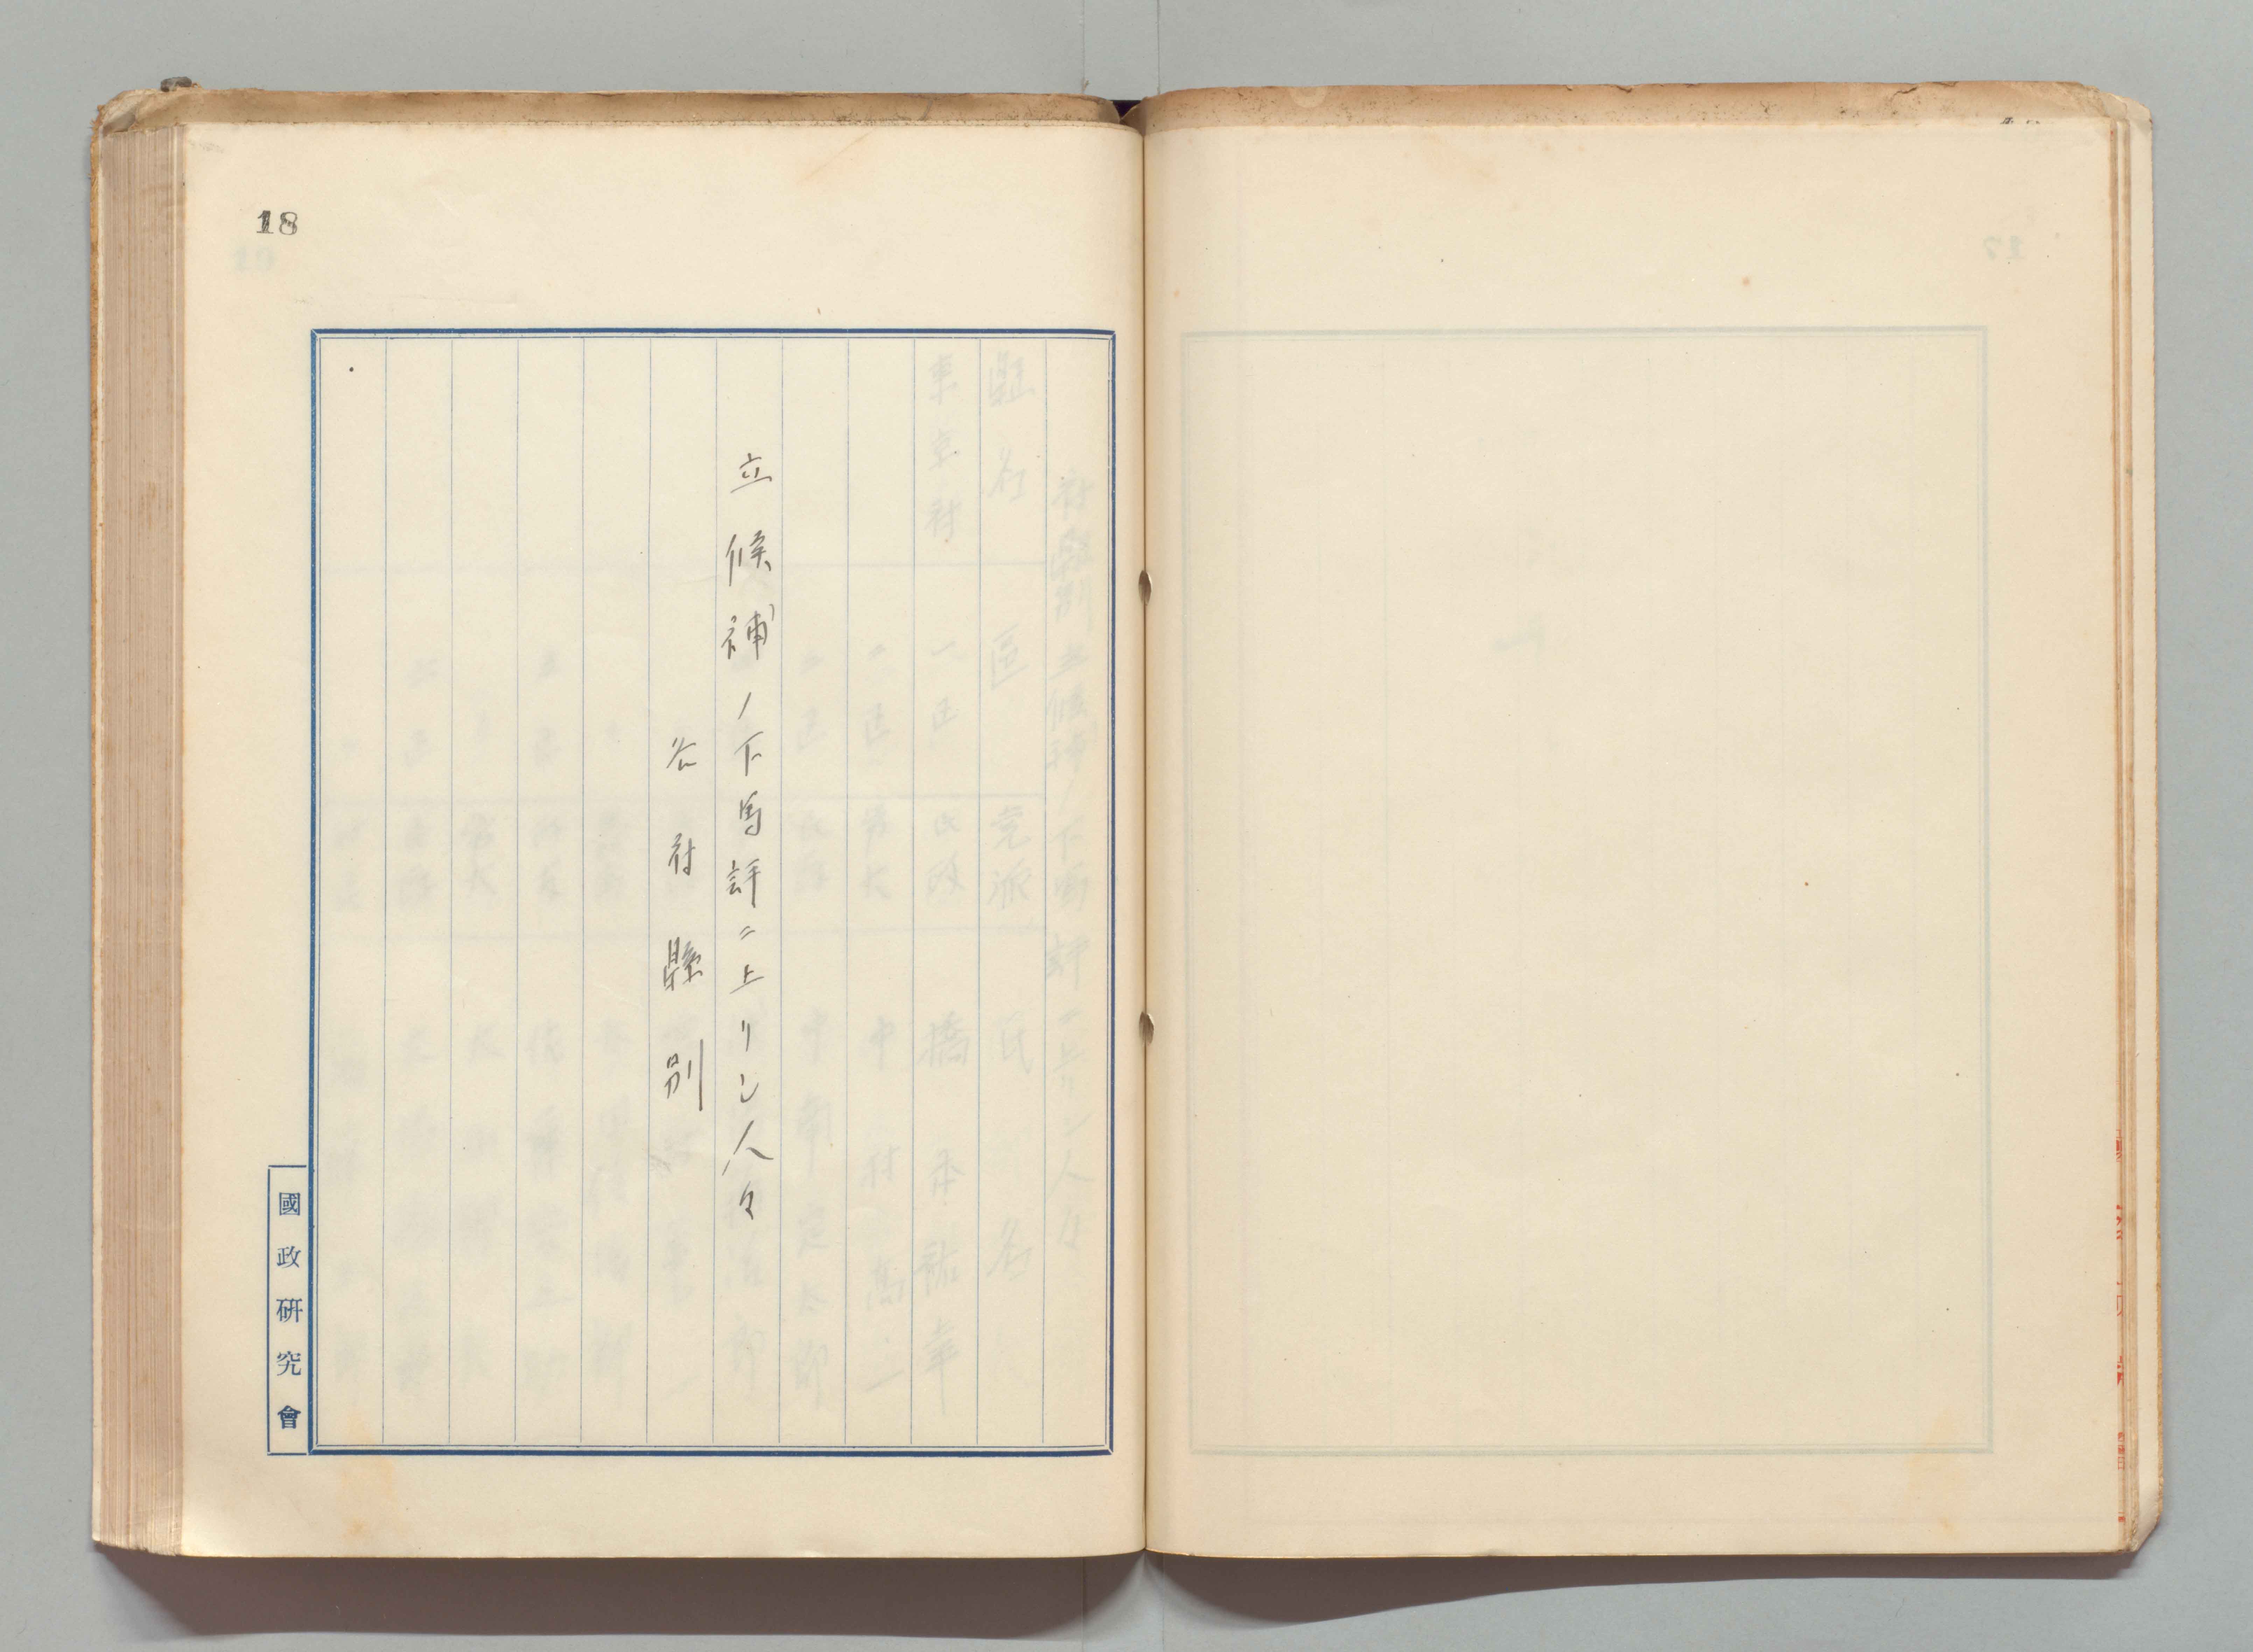 18
立候補ノ下馬評ニ上リシ人々
各府縣別
國政研究會